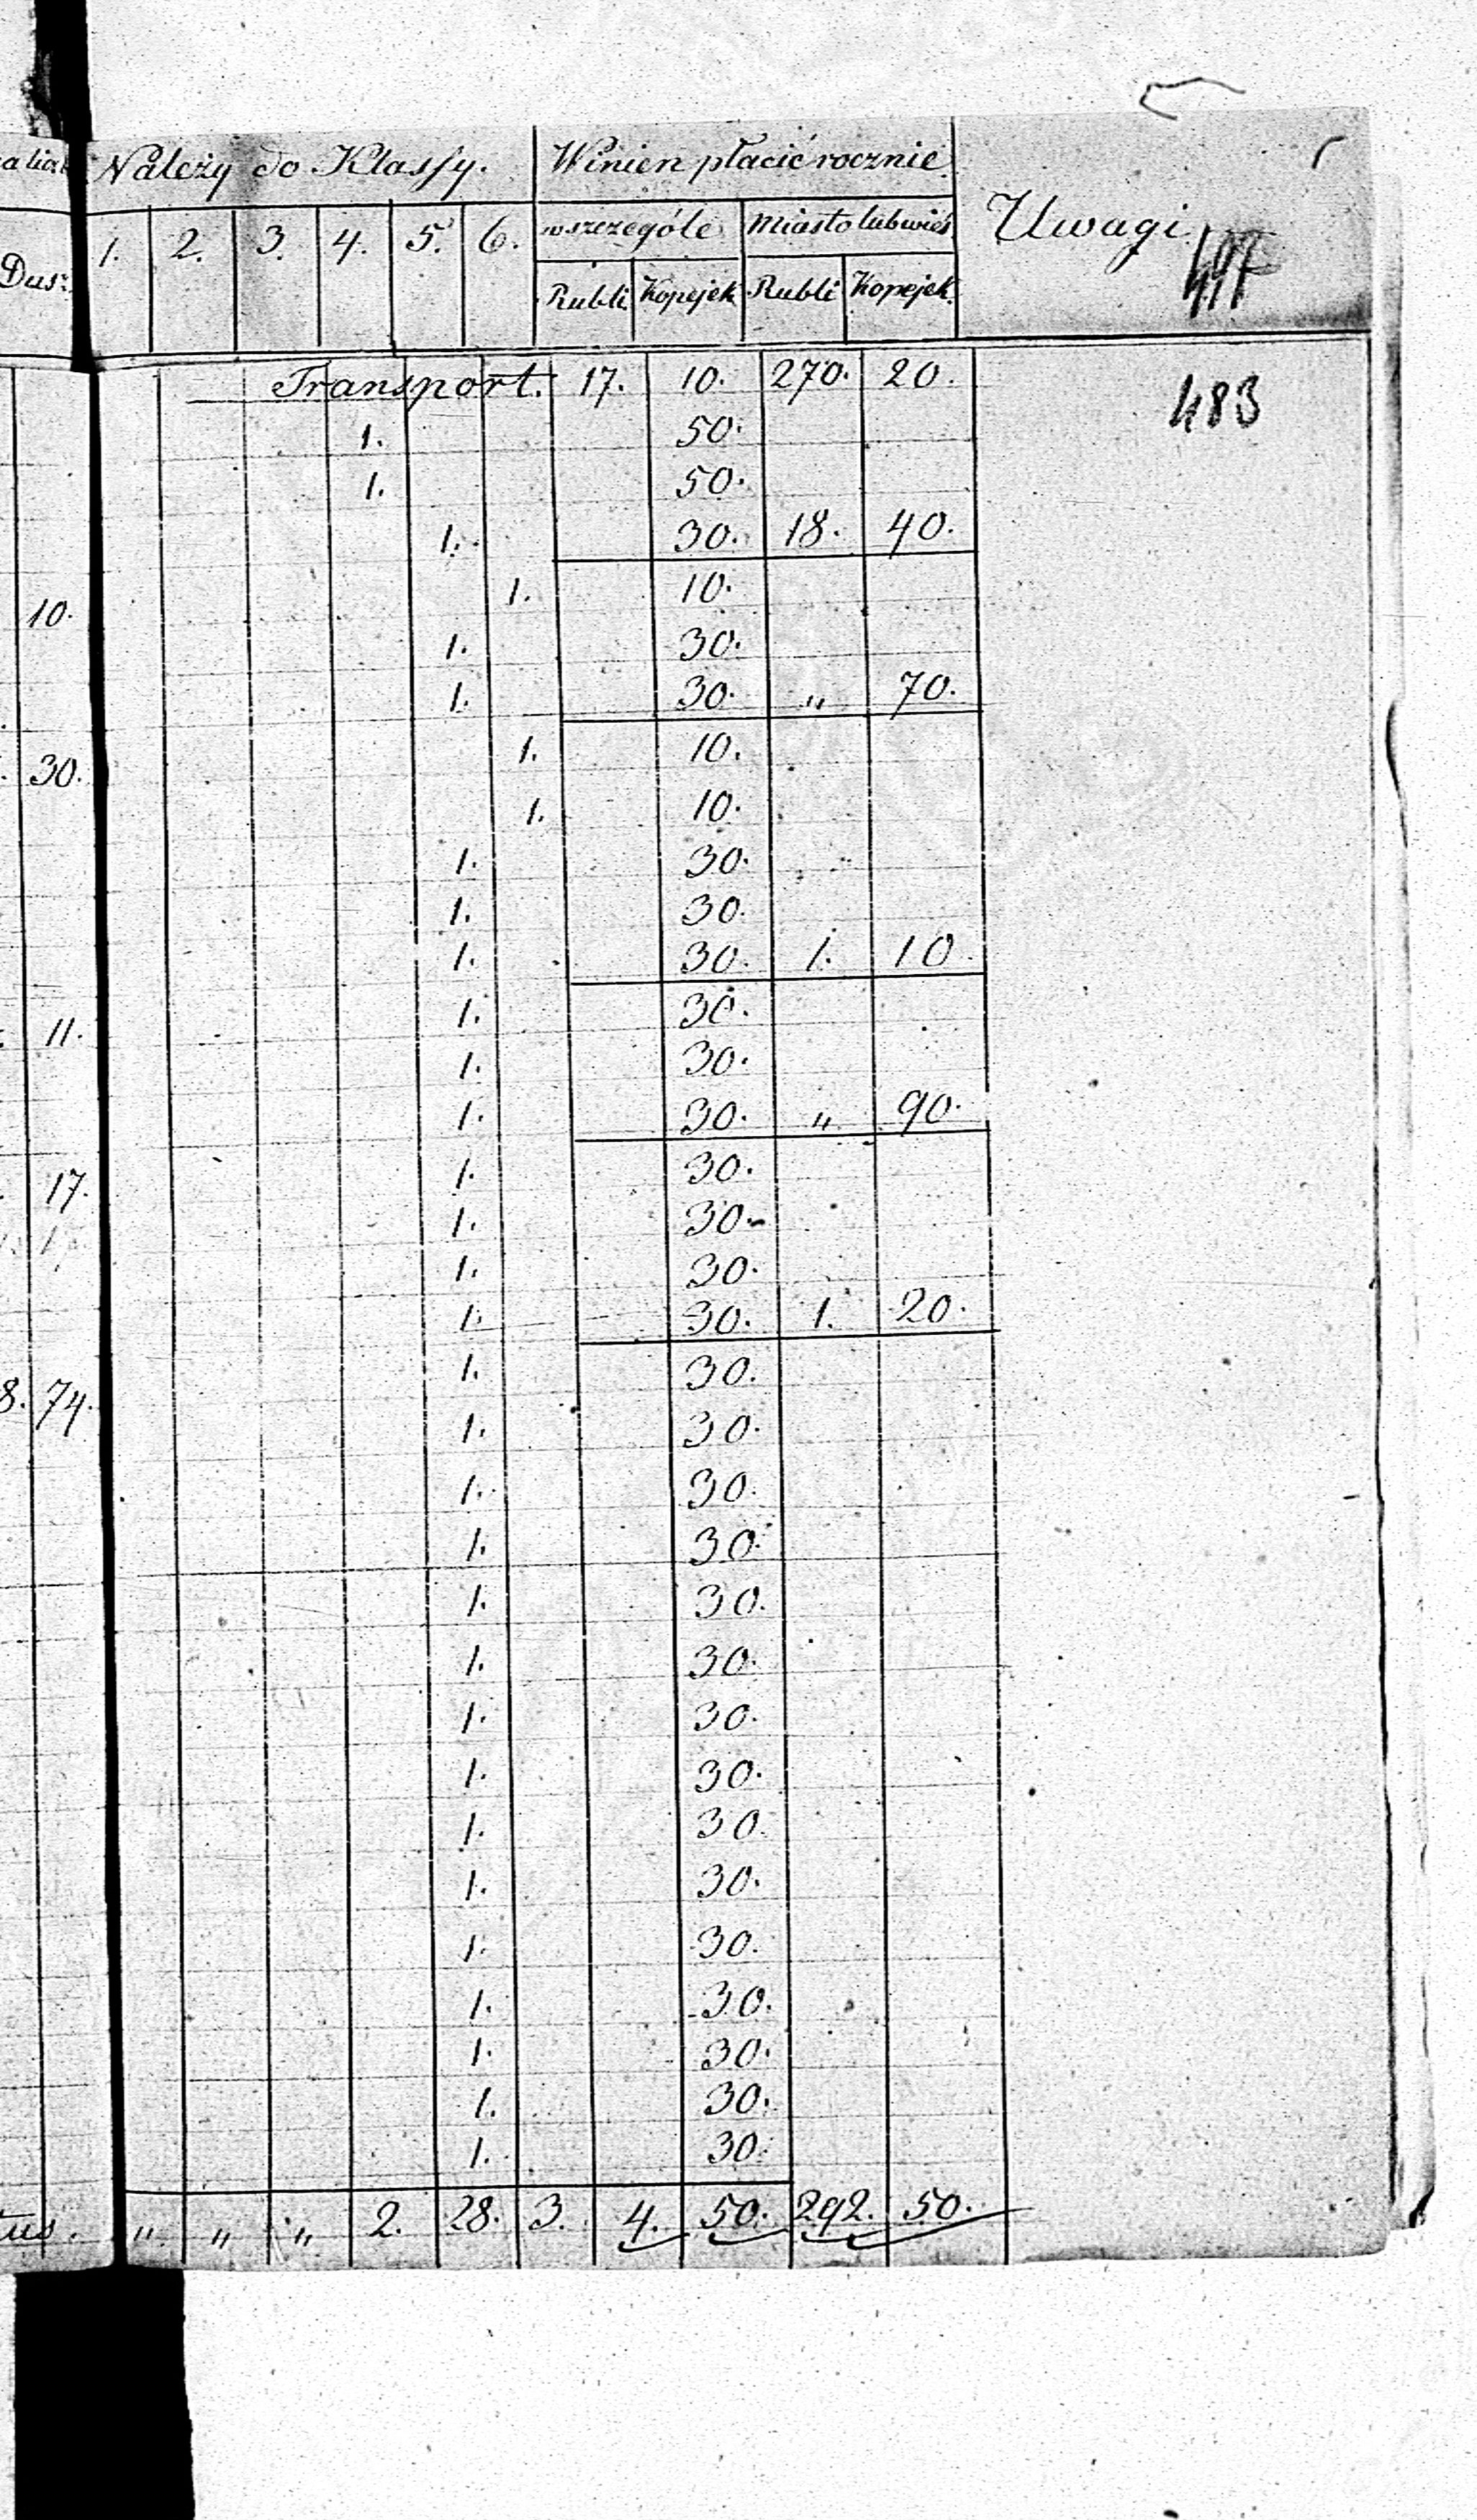 Należy do Klassy. Winien płacić rocznie
wszczególe Miasto lub wieś Uwagi
1. 2. 3. 4. 5. 6.
Dusz. Rubli Kopejek Rubli Kopejek
Transport. 17. 10. 270. 20.
483
1. 50.
1. 50.
1. 30. 18. 40.
1. 10.
10. 1. 30.
1. 30. " 70.
1. 10.
30.
1. 10.
1. 30.
1. 30.
1. 30. 1. 10.
1. 30.
11.
1. 30.
1. 30. " 90.
1. 30.
17.
1. 30.
1. 30.
1. 30. 1. 20.
1. 30.
8. 74.
1. 30.
1. 30.
1. 30.
1. 30.
1. 30.
1. 30.
1. 30.
1. 30.
1. 30.
1. 30.
1. 30.
1. 30.
1. 30.
1. 30.
" " " 2. 28. 3. 4. 50. 292. 50.